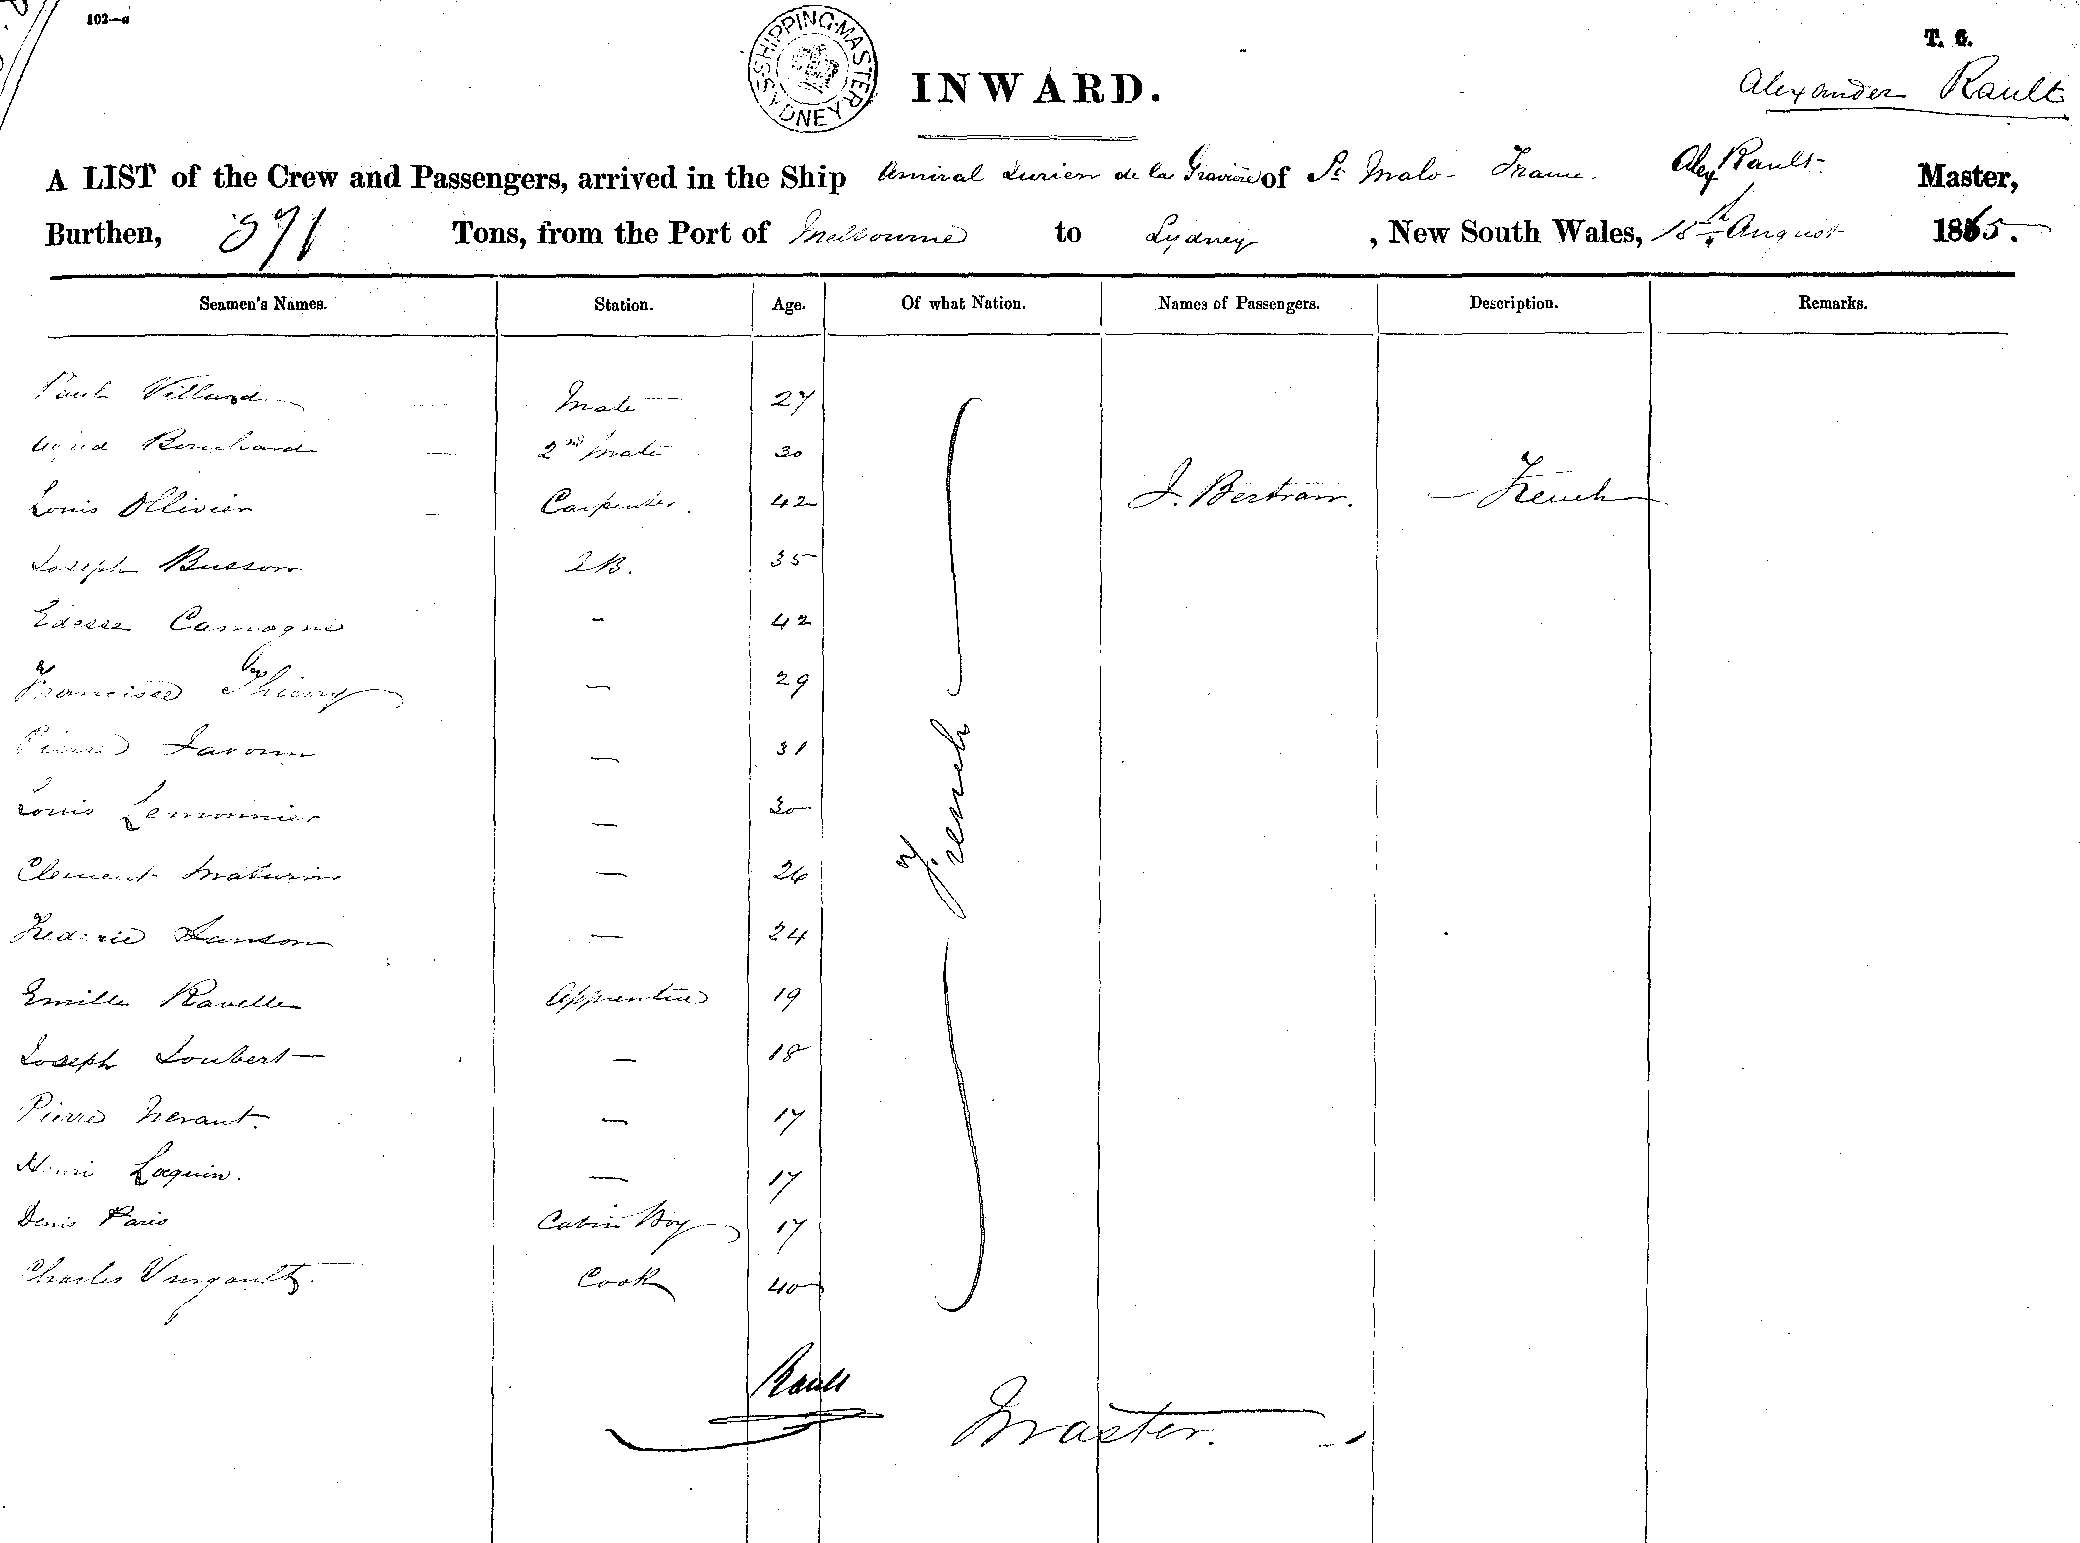 102—a
SHIPPING MASTER SYDNEY
T. G.
INWARD.
Alexander Rault
A LIST of the Crew and Passengers, arrived in the Ship Amiral Jurien de la Gravière of St Malo - France. Alex Rault Master,
Burthen, 391 Tons, from the Port of Melbourne to Sydney , New South Wales, August 1865.
Seamen's Names. Station. Age. Of what Nation. Names of Passengers. Description. Remarks.
Paul Villard Mate 27
Bouchard 2nd Mate 30
Louis Ollivier Carpenter. 42 J. Bertram. — French
Joseph Busson AB. 35
Camogné - 42
Francisce Thierry — 29
Pierre — 31
French
Louis Lemonnier — 30
Clement Maturin — 26
Frederic Hanson — 24
Emille Ravelle Apprentice 19
Joseph Joubert — 18
Pierre Nerant. — 17
Henri Loquin. — 17
Denis Paris Cabin Boy 17
Charles Cook 40
Rault
Master.